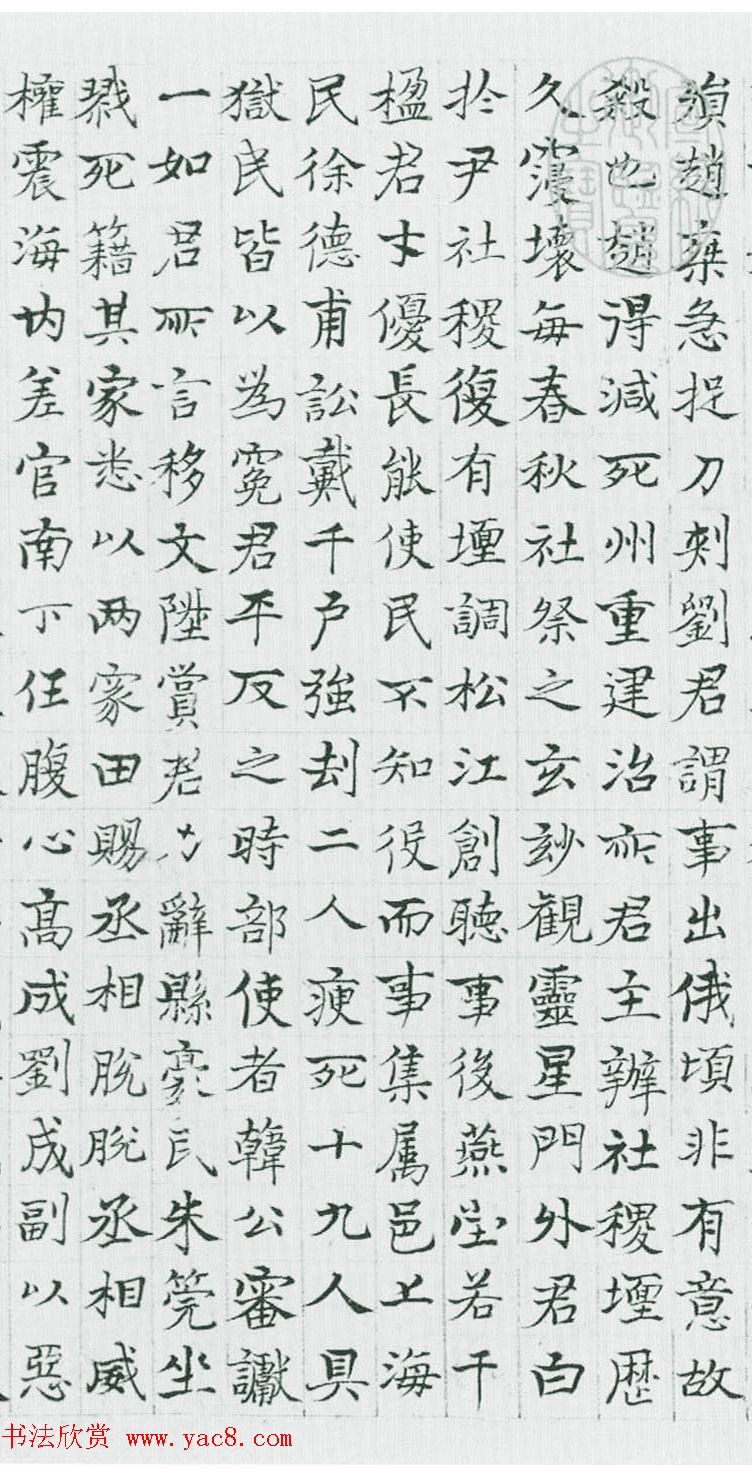 頃趙棄急捉刀刺劉君謂事出俄頃非有意故
殺也趙得減死州重建治所君主辦社稷壇歴
久寖壞每春秋社祭之玄妙觀靈星門外君白
扵尹社稷復有壇調松江創聽事後燕堂若干
楹君才優長能使民不知役而事集属邑上海
民徐德甫訟戴千户強刦二人瘐死十九人具
獄民皆以為寃君平反之時部使者韓公審讞
一如君所言移文陞賞君力辭縣豪民朱筦坐
戮死籍其家悉以两家田賜丞相脫脫丞相威
權震海内差官南下任腹心髙成劉成副以惡
书法欣赏 www.yac8.com